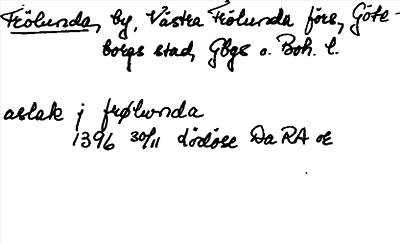 Frölunda, by, Västra Frölunda förs, Göte-
borgs stad, Gbgs o. Boh. l.
aslak j frølunda
1396 30/11 lödöse Da RA or